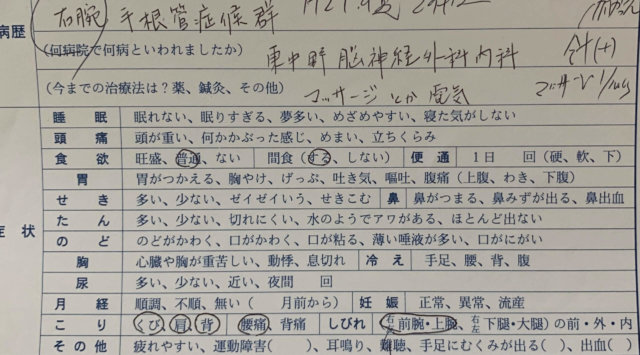 右腕 手根管症候群
病歴
(何病院で何病といわれましたか) 東中野脳神経外科内科 針(+)
(今までの治療法は?薬、鍼灸、その他) マッサージとか電気
症状
睡眠 眠れない、眠りすぎる、夢多い、めざめやすい、寝た気がしない
頭痛 頭が重い、何かかぶった感じ、めまい、立ちくらみ
食欲 旺盛、普通、ない 間食(する、しない) 便通 1日 回(硬、軟、下)
胃 胃がつかえる、胸やけ、げっぷ、吐き気、嘔吐、腹痛(上腹、わき、下腹)
せき 多い、少ない、ゼイゼイいう、せきこむ 鼻 鼻がつまる、鼻みずが出る、鼻出血
たん 多い、少ない、切れにくい、水のようでアワがある、ほとんど出ない
のど のどがかわく、口がかわく、口が粘る、薄い唾液が多い、口がにがい
胸 心臓や胸が重苦しい、動悸、息切れ 冷え 手足、腰、背、腹
尿 多い、少ない、近い、夜間 回
月経 順調、不順、無い( 月前から) 妊娠 正常、異常、流産
こり くび、肩、背 腰痛、背痛 しびれ 右左(前腕・上腕、右左下腿・大腿)の前・外・内
その他 疲れやすい、運動障害( )、耳鳴り、難聴、手足にむくみがある( )、出血( )